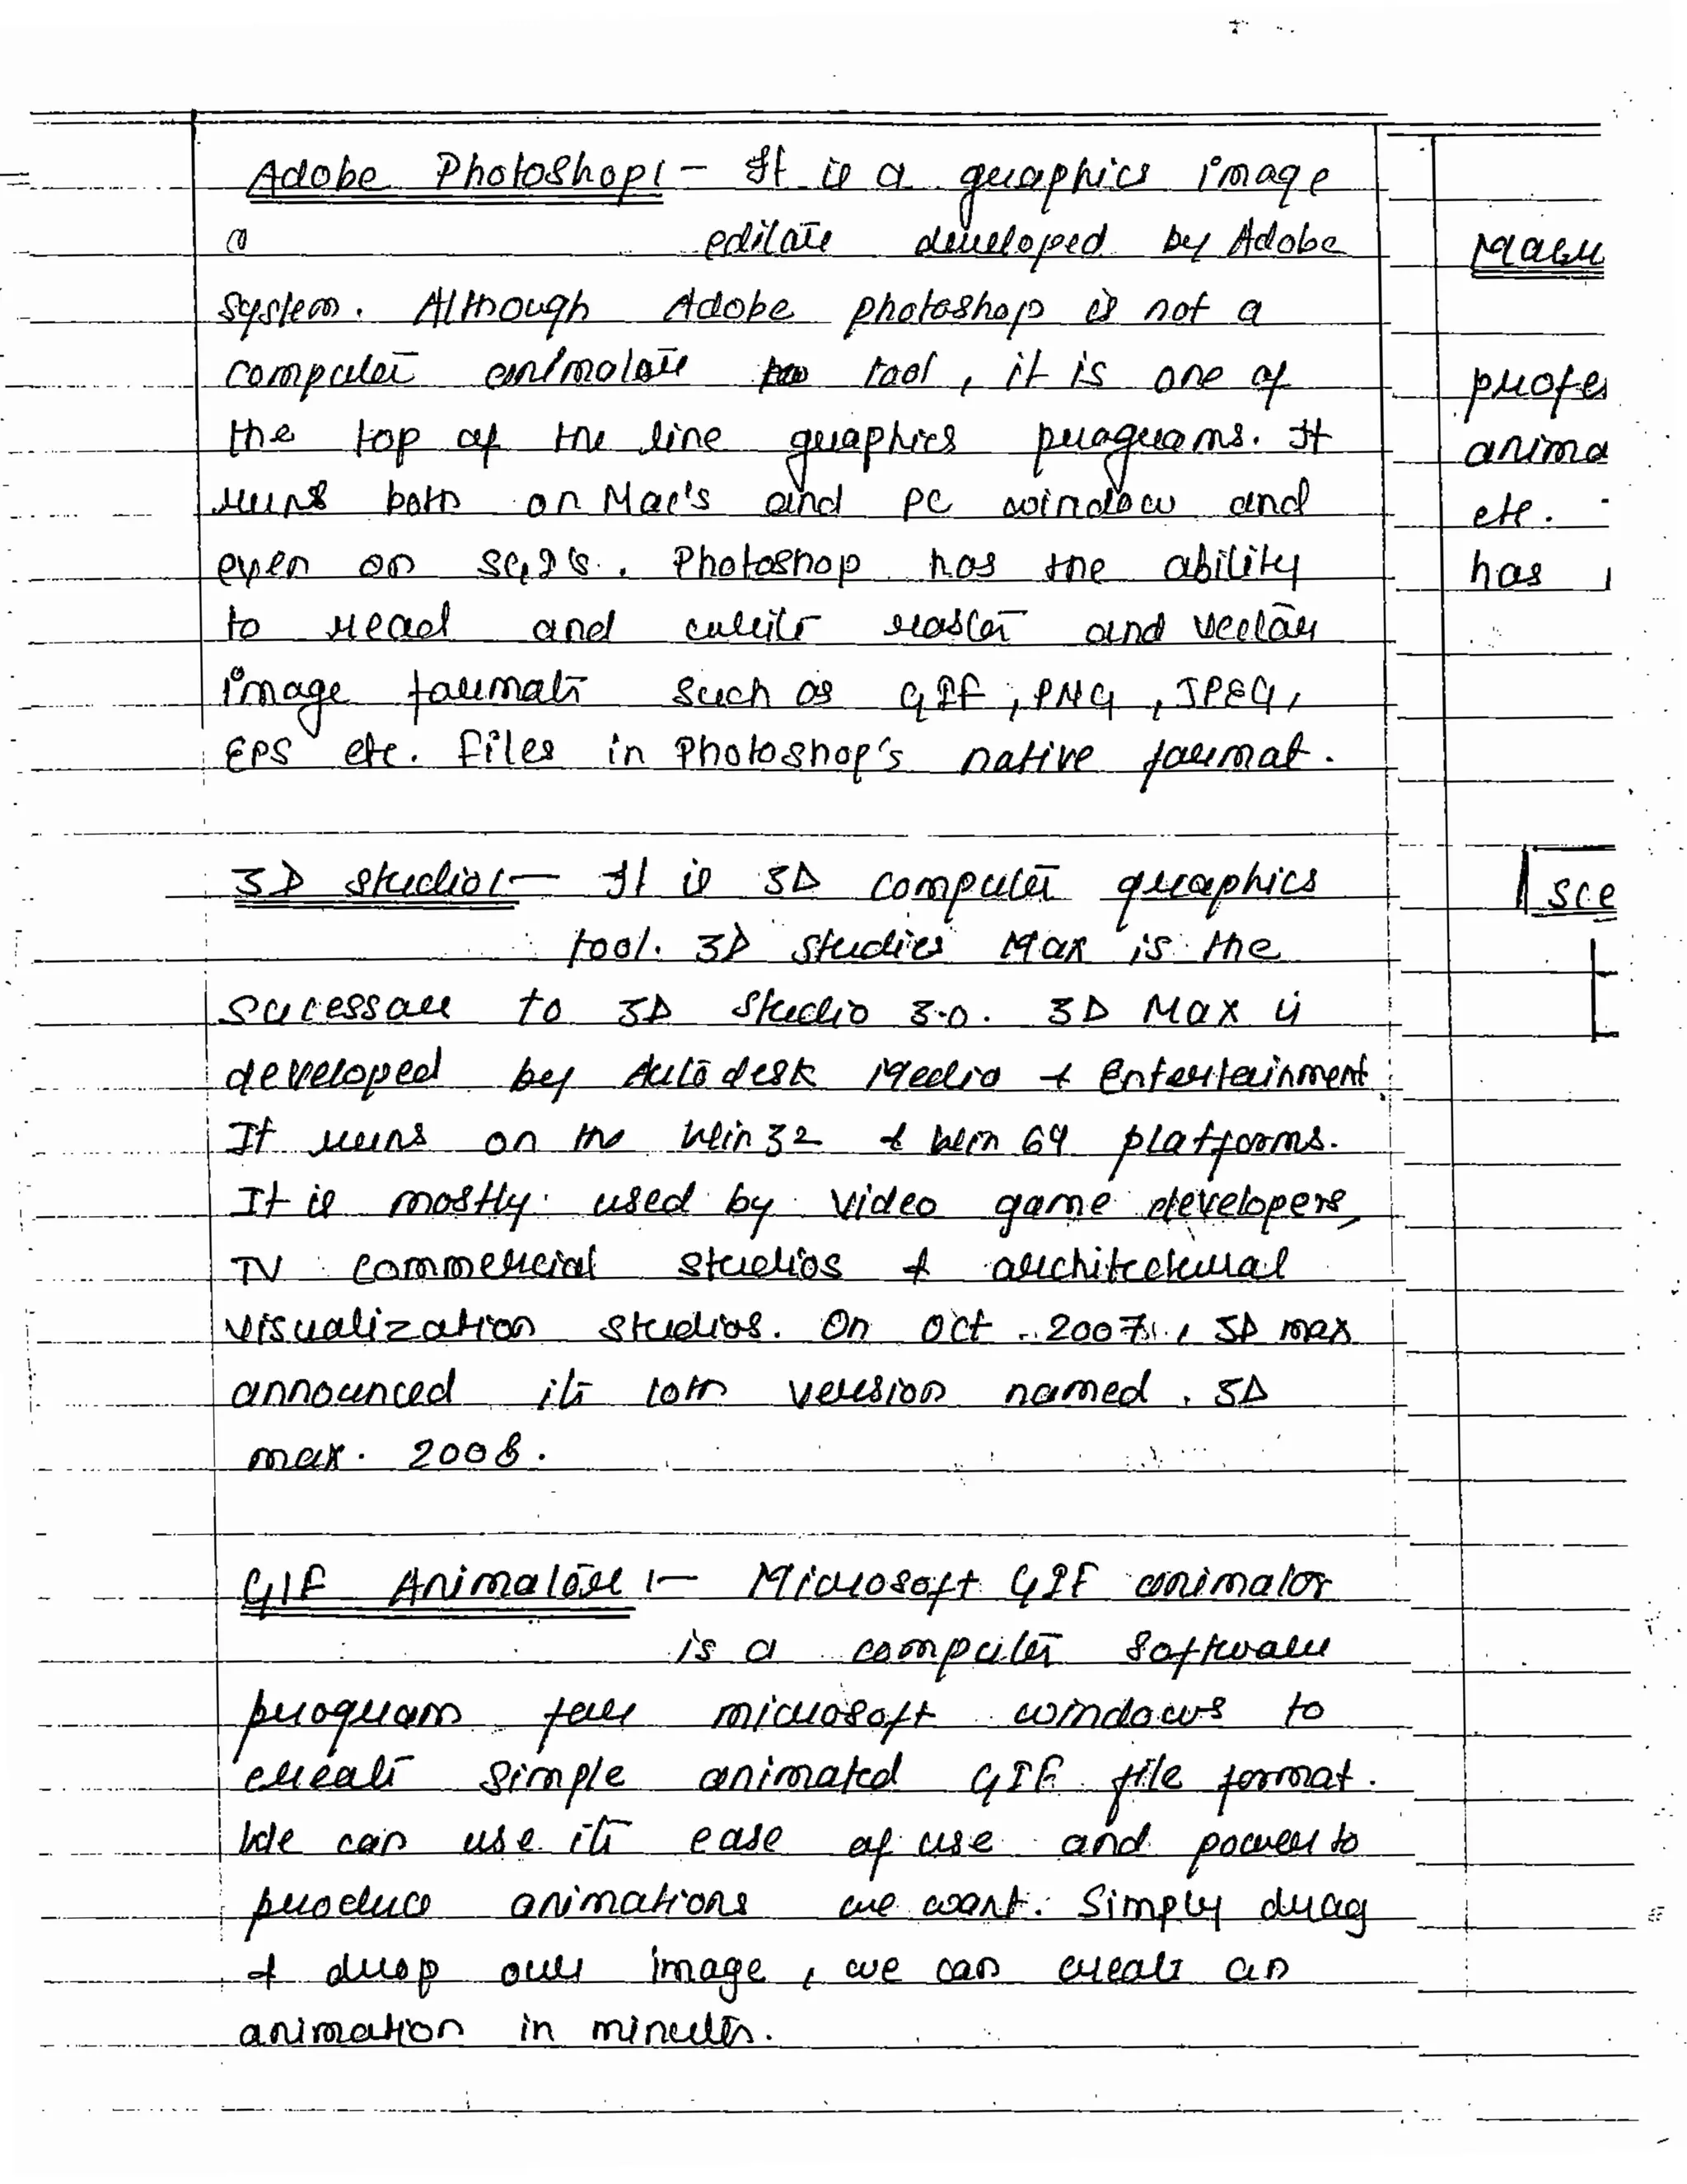 Adobe Photoshop:- It is a graphics image
editor developed by Adobe
system. Although Adobe photoshop is not a
computer animator tool, it is one of
the top of the line graphics programs. It
runs both on Mac's and PC window and
even on SGI's. Photoshop has the ability
to read and write raster and vector
image formats such as GIF, PNG, JPEG,
EPS etc. files in Photoshop's native format.
3D studio:- It is 3D computer graphics
tool. 3D studies Max is the
sucessor to 3D Studio 3.0. 3D Max is
developed by Autodesk Media & Entertainment.
It runs on the Win32 & Win 64 platforms.
It is mostly used by video game developers,
TV commercial studios & architectural
visualization studios. On Oct 2007, 3D max
announced its 10th version named 3D
max 2008.
GIF Animator:- Microsoft GIF animator
is a computer software
program for microsoft windows to
create simple animated GIF file format.
We can use its ease of use and power to
produce animations we want. Simply drag
& drop our image, we can create an
animation in minutes.
profes
anima
etc.
has
sce